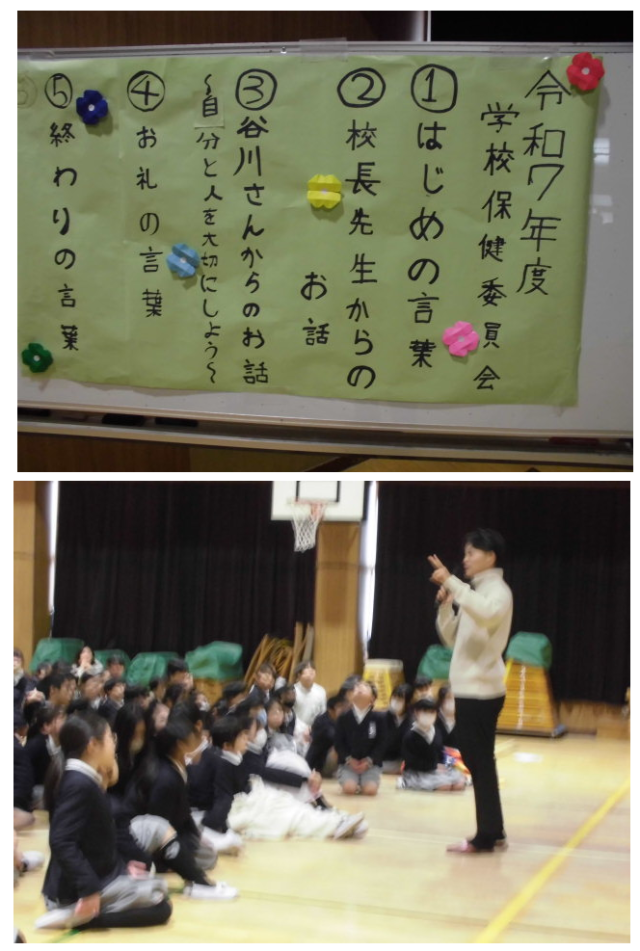 令和7年度
学校保健委員会
①はじめの言葉
②校長先生からの
お話
③谷川さんからのお話
～自分と人を大切にしよう～
④お礼の言葉
⑤終わりの言葉